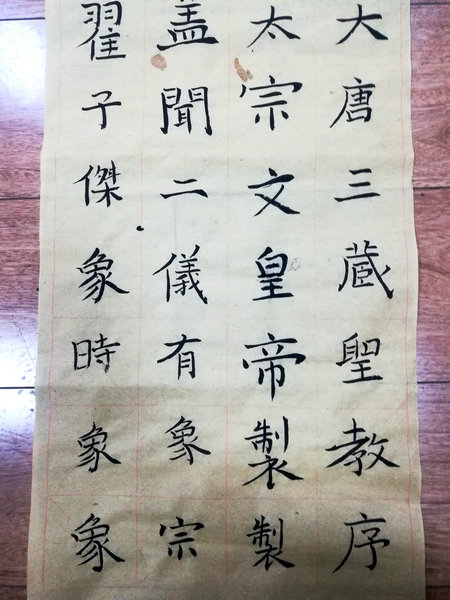 大唐三蔵聖教序
太宗文皇帝製製
蓋聞二儀有象宗
翟子傑象時象象